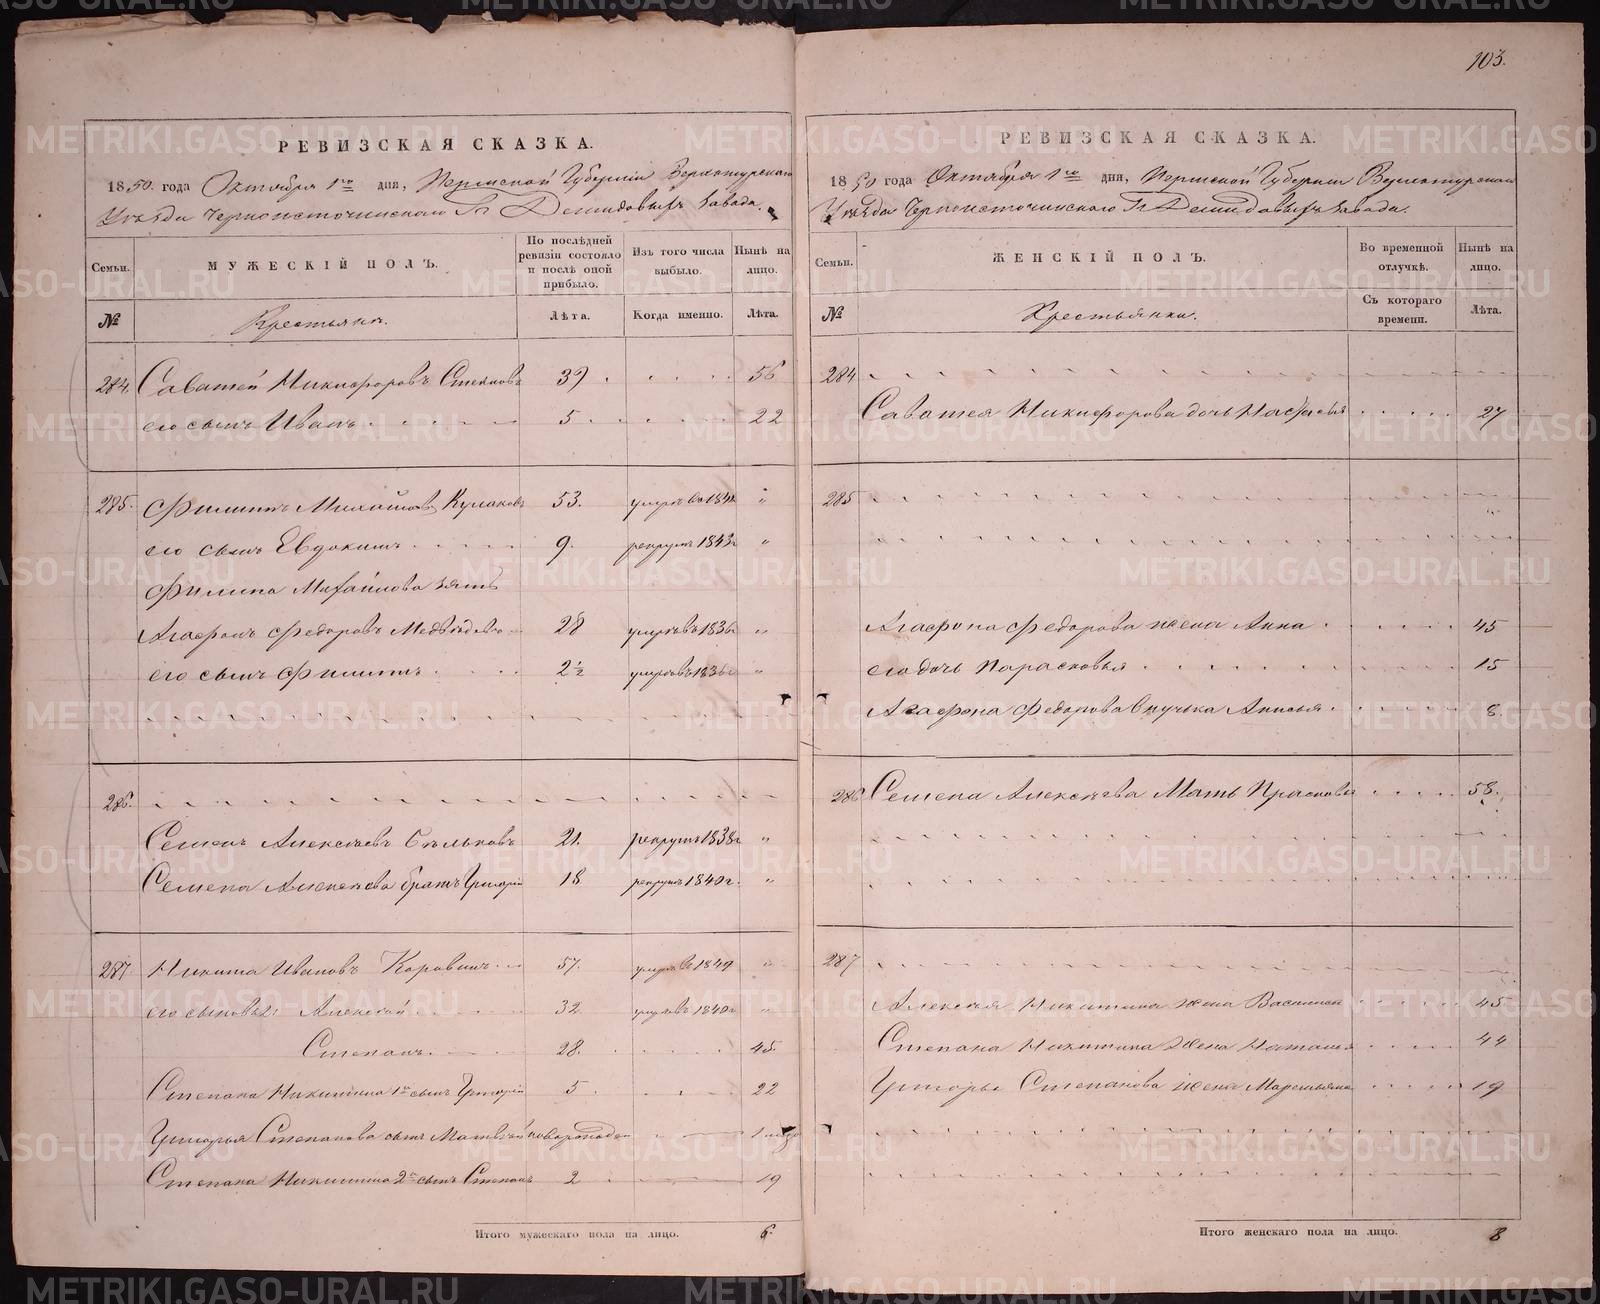 103.
РЕВИЗСКАЯ СКАЗКА.
1850. года Октября 1го дня, Пермской Губерніи Верхотурскаго
Уѣзда Черноисточинскаго Гг Демидовыхъ завода.
Семьи.
МУЖЕСКІЙ ПОЛЪ.
По послѣдней ревизіи состояло и послѣ оной прибыло.
Изъ того числа выбыло.
Нынѣ на лицо.
№
Крестьяне.
Лѣта.
Когда именно.
Лѣта.
284. Саватей Никифоровъ 39 56
его сынъ Иванъ 5 22
285. Филиппъ Михайловъ Кулаковъ 53. умеръ в "
его сынъ Евдокимъ 9. рекрутъ 1843г "
Филипа Михайлова зять
Агафонъ Федоровъ Медвѣдевъ 28 умеръ въ 1836г "
его сынъ Филиппъ 2½ умеръ въ 1836г "
286.
Семенъ Алексѣевъ Бѣльковъ 21. рекрутъ 1838г "
Семена Алексѣева братъ Григорій 18 рекрутъ 1840г. "
287. Никита Ивановъ Коровинъ 57. умеръ въ 1849 "
его сыновья Алексѣй 32 умеръ въ 1840г "
Степанъ 28. 45.
Степана Никитина 1й сынъ Григорій 5 22
Григорья Степанова сынъ Матвѣй новорожден
Степана Никитина 2й сынъ Степанъ 2 19
Итого мужескаго пола на лицо. 6.
РЕВИЗСКАЯ СКАЗКА.
1850 года Октября 1го дня, Пермской Губерніи Верхотурскаго
Уѣзда Черноисточинскаго Гг Демидовыхъ завода.
Семьи.
ЖЕНСКІЙ ПОЛЪ.
Во временной отлучкѣ.
Нынѣ на лицо.
№
Крестьянки.
Съ котораго времени.
Лѣта.
284
Саватея Никифорова дочь Настасья 27
285
Агафона Федорова жена Анна 45
его дочь Парасковья 15
Агафона Федорова внучька Анисья 8.
286 Семена Алексѣева Мать Прасковья 58.
287
Алексѣя Никитина жена Василиса 45
Степана Никитина Жена Наталья 44
Григорья Степанова жена Маремьяна 19
Итого женскаго пола на лицо. 8
METRIKI.GASO-URAL.RU